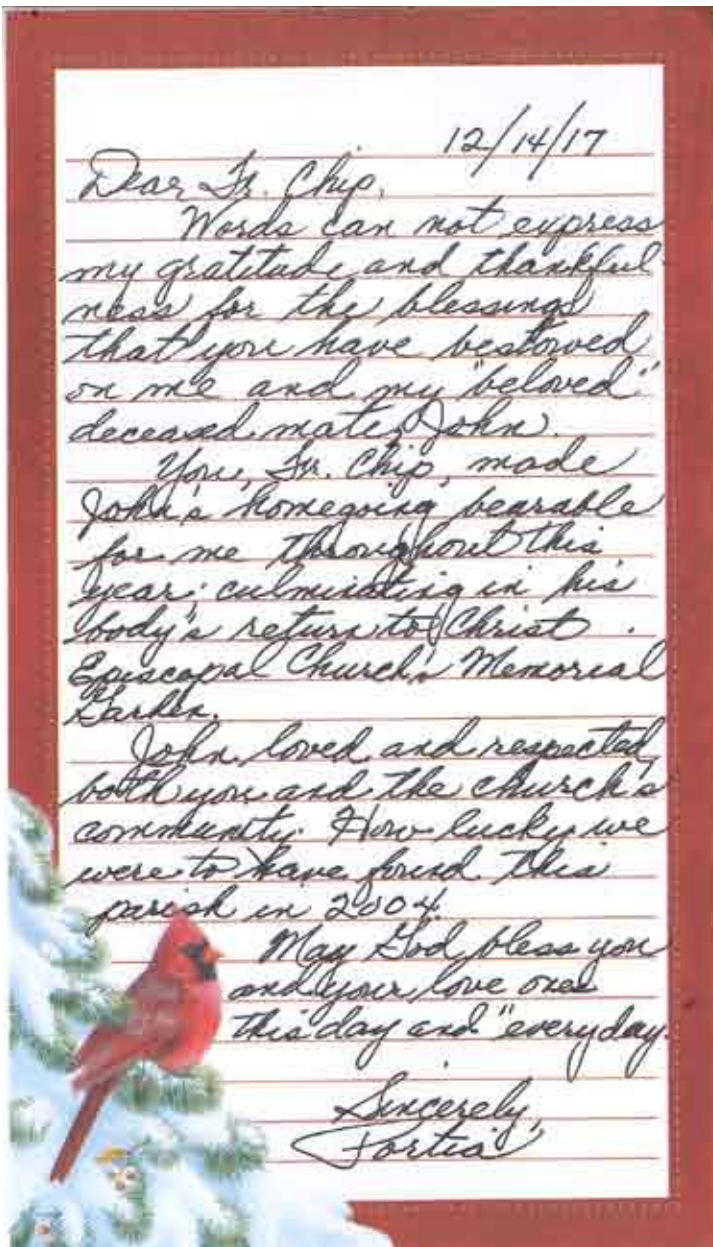 12/14/17
Dear Fr. Chip,
Words can not express
my gratitude and thankful-
ness for the blessings
that you have bestowed
on me and my "beloved"
deceased mate, John.
You, Fr. Chip, made
John's homegoing bearable
for me throughout this
year; culminating in his
body's return to Christ
Episcopal Church's Memorial
Garden.
John loved and respected
both you and the church's
community. How lucky we
were to have found this
parish in 2004.
May God bless you
and your love ones
this day and "everyday.
Sincerely,
Portia